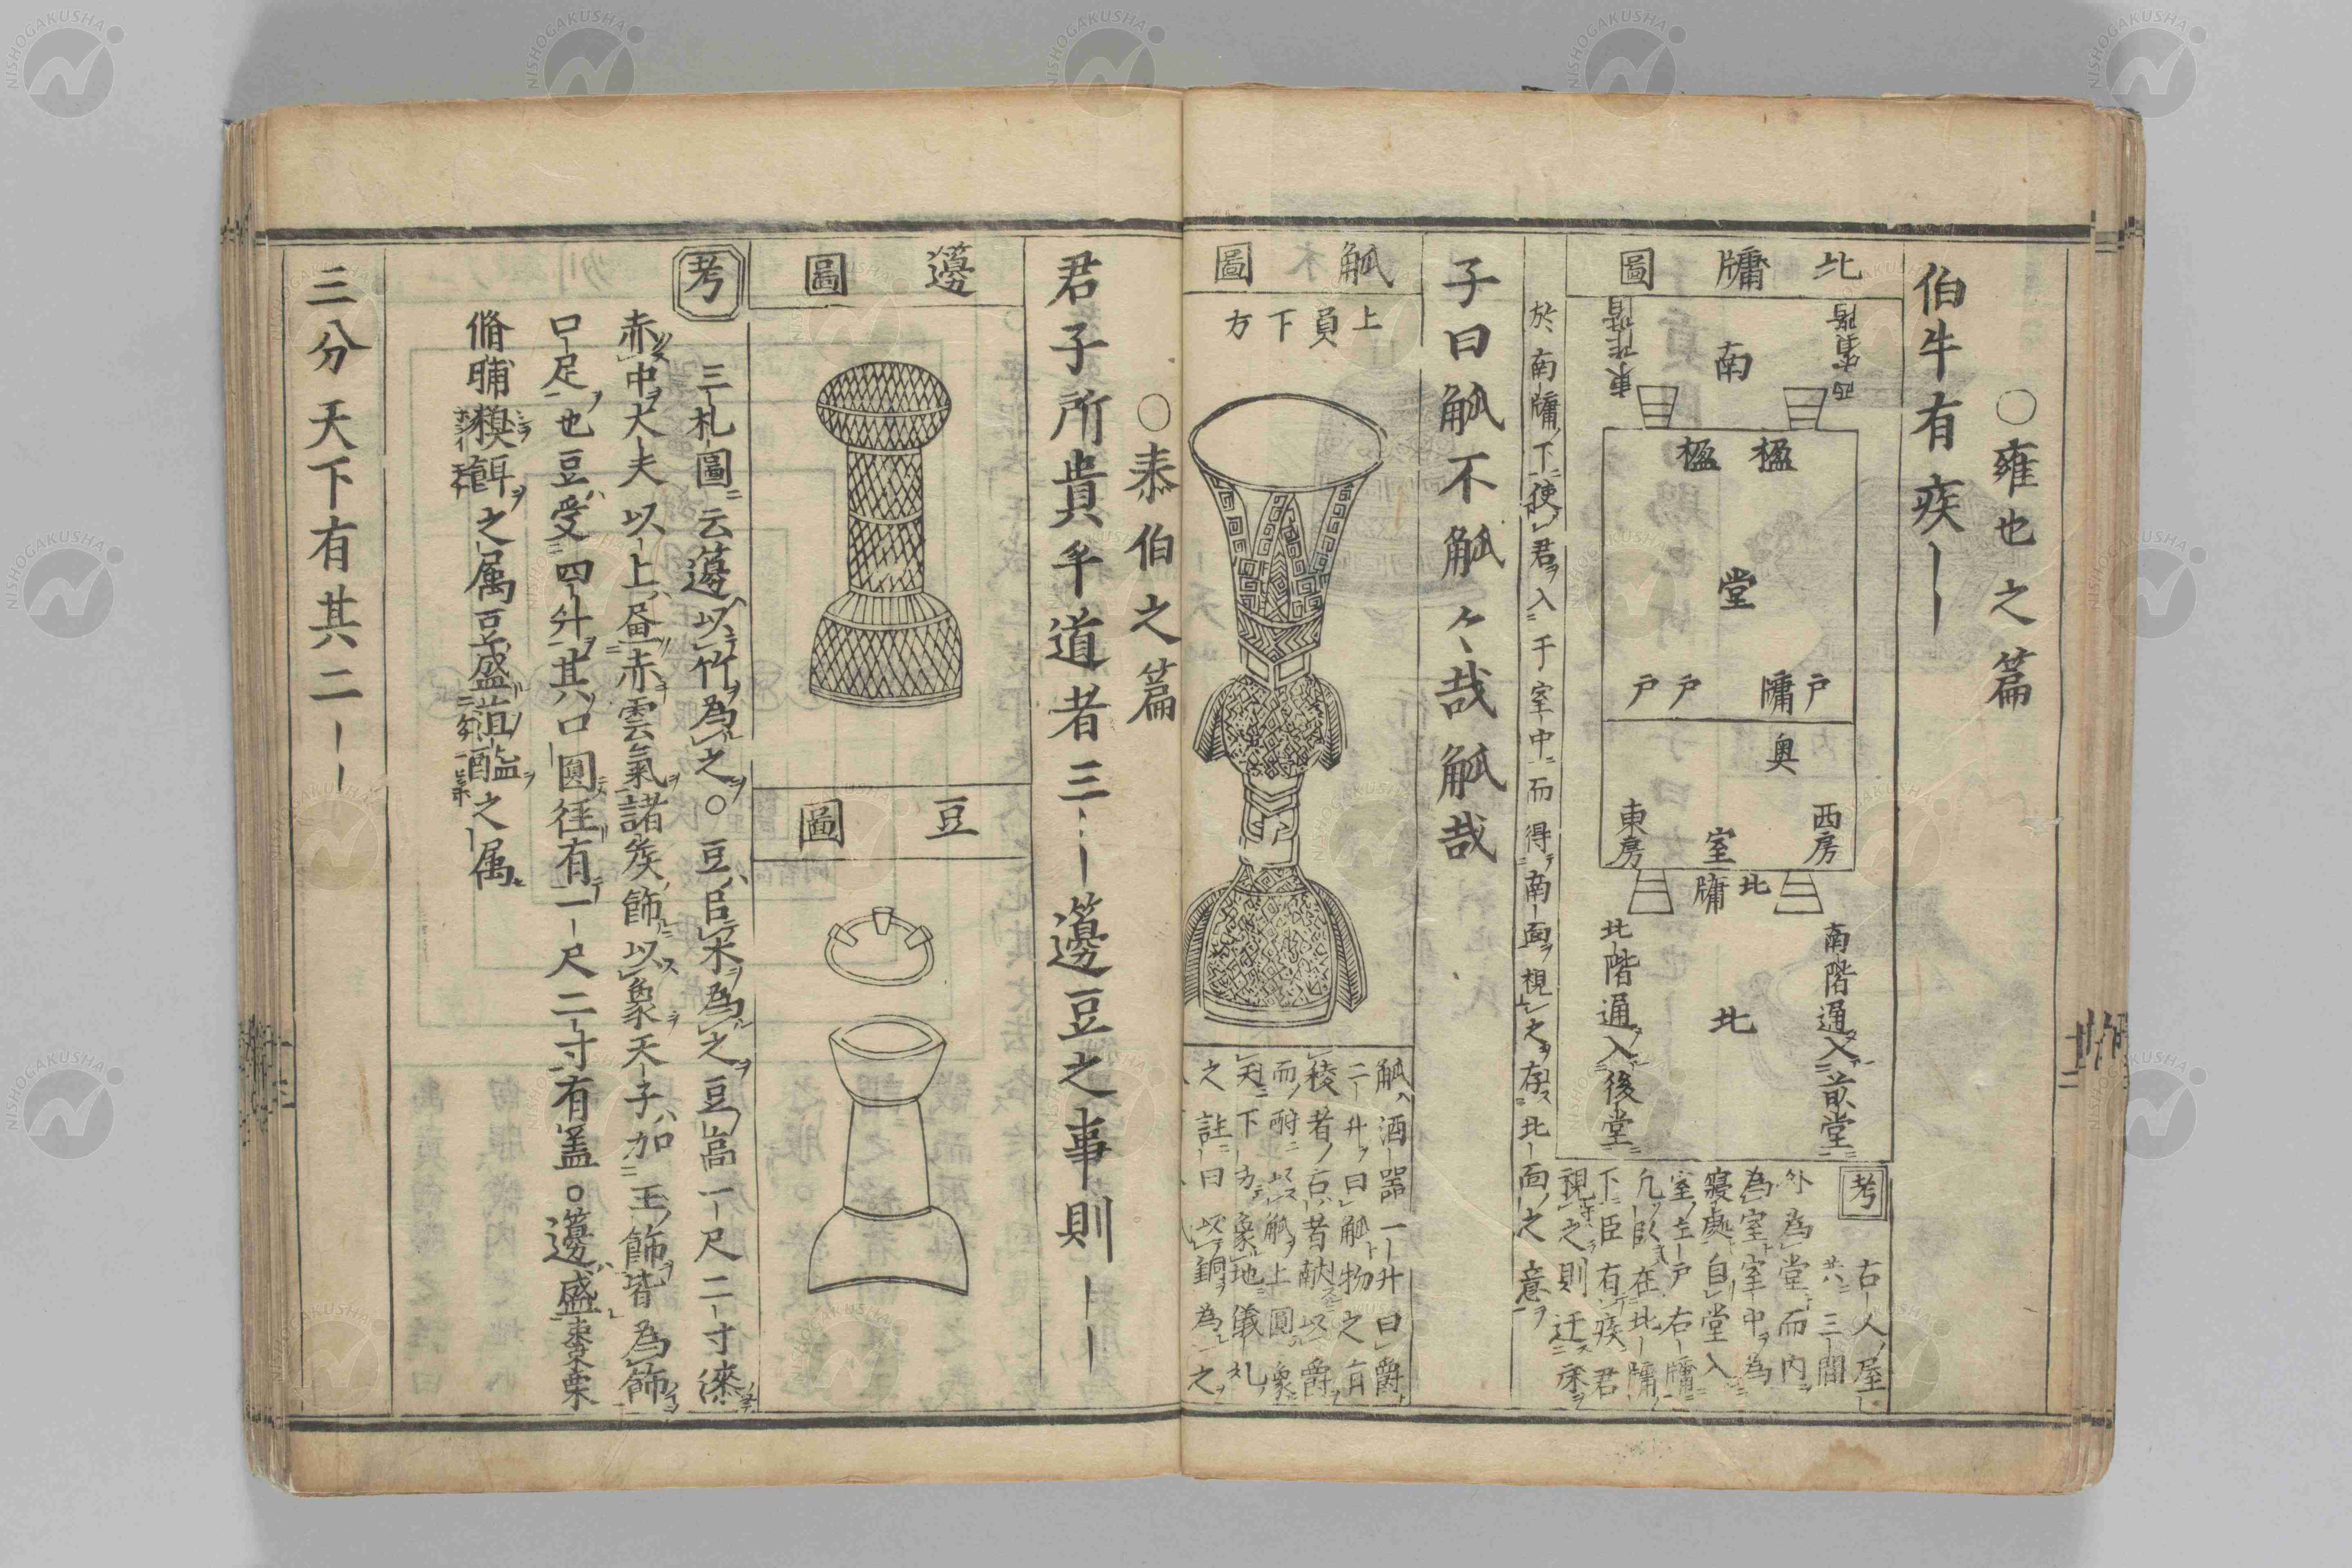 ○雍也之篇
伯牛有疾
北牗圖
西賓階
南
東阼階
楹
楹
堂
戸牗
戸戸
奥
西房
室
東房
北牗
南階通入前堂
北
北階通入後堂
考
右人屋
共三間
外為堂而内
為室室中為
寢處自堂入
室左戸右牗
凡臥在北牗
下臣有疾君
視之則迁床
於南牗下使君入于室中而得南面視之存北面之意
子曰觚不觚々哉觚哉
觚圖
上員下方
觚酒器一升曰爵
二升曰觚物之有
稜者古者献以爵
而酬以觚上圓象
天下方象地儀礼
之註曰以銅為之
○泰伯之篇
君子所貴乎道者三籩豆之事則
籩圖
豆圖
考
三礼圖云籩以竹為之○豆以木為之豆高一尺二寸漆
赤中大夫以上畫赤雲氣諸矦飾以象天子加玉飾皆為飾
口足也豆受四升其口圓徑有一尺二寸有蓋○籩盛棗栗
脩脯糗餌之属豆盛菹醢之属
三分天下有其二
NISHOGAKUSHA